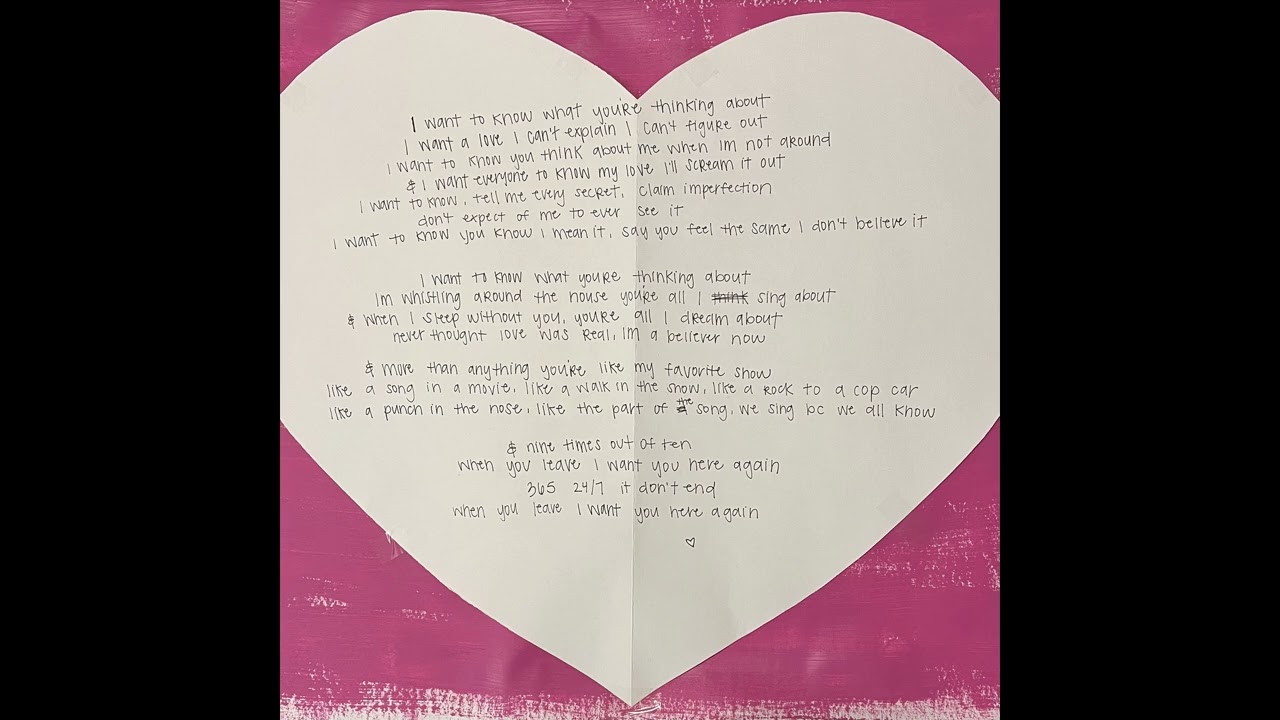 I want to know what you're thinking about
I want a love I can't explain I can't figure out
I want to know you think about me when Im not around
& I want everyone to know my love I'll scream it out
I want to know, tell me every secret, claim imperfection
don't expect of me to ever see it
I want to know you know I mean it, say you feel the same I don't believe it
I want to know what youre thinking about
Im whistling around the house you're all I think sing about
& when I sleep without you, youre all I dream about
never thought love was real, Im a believer now
& more than anything you're like my favorite show
like a song in a movie, like a walk in the snow, like a rock to a cop car
like a punch in the nose, like the part of the song, we sing bc we all know
& nine times out of ten
when you leave I want you here again
365 24/7 it don't end
when you leave I want you here again